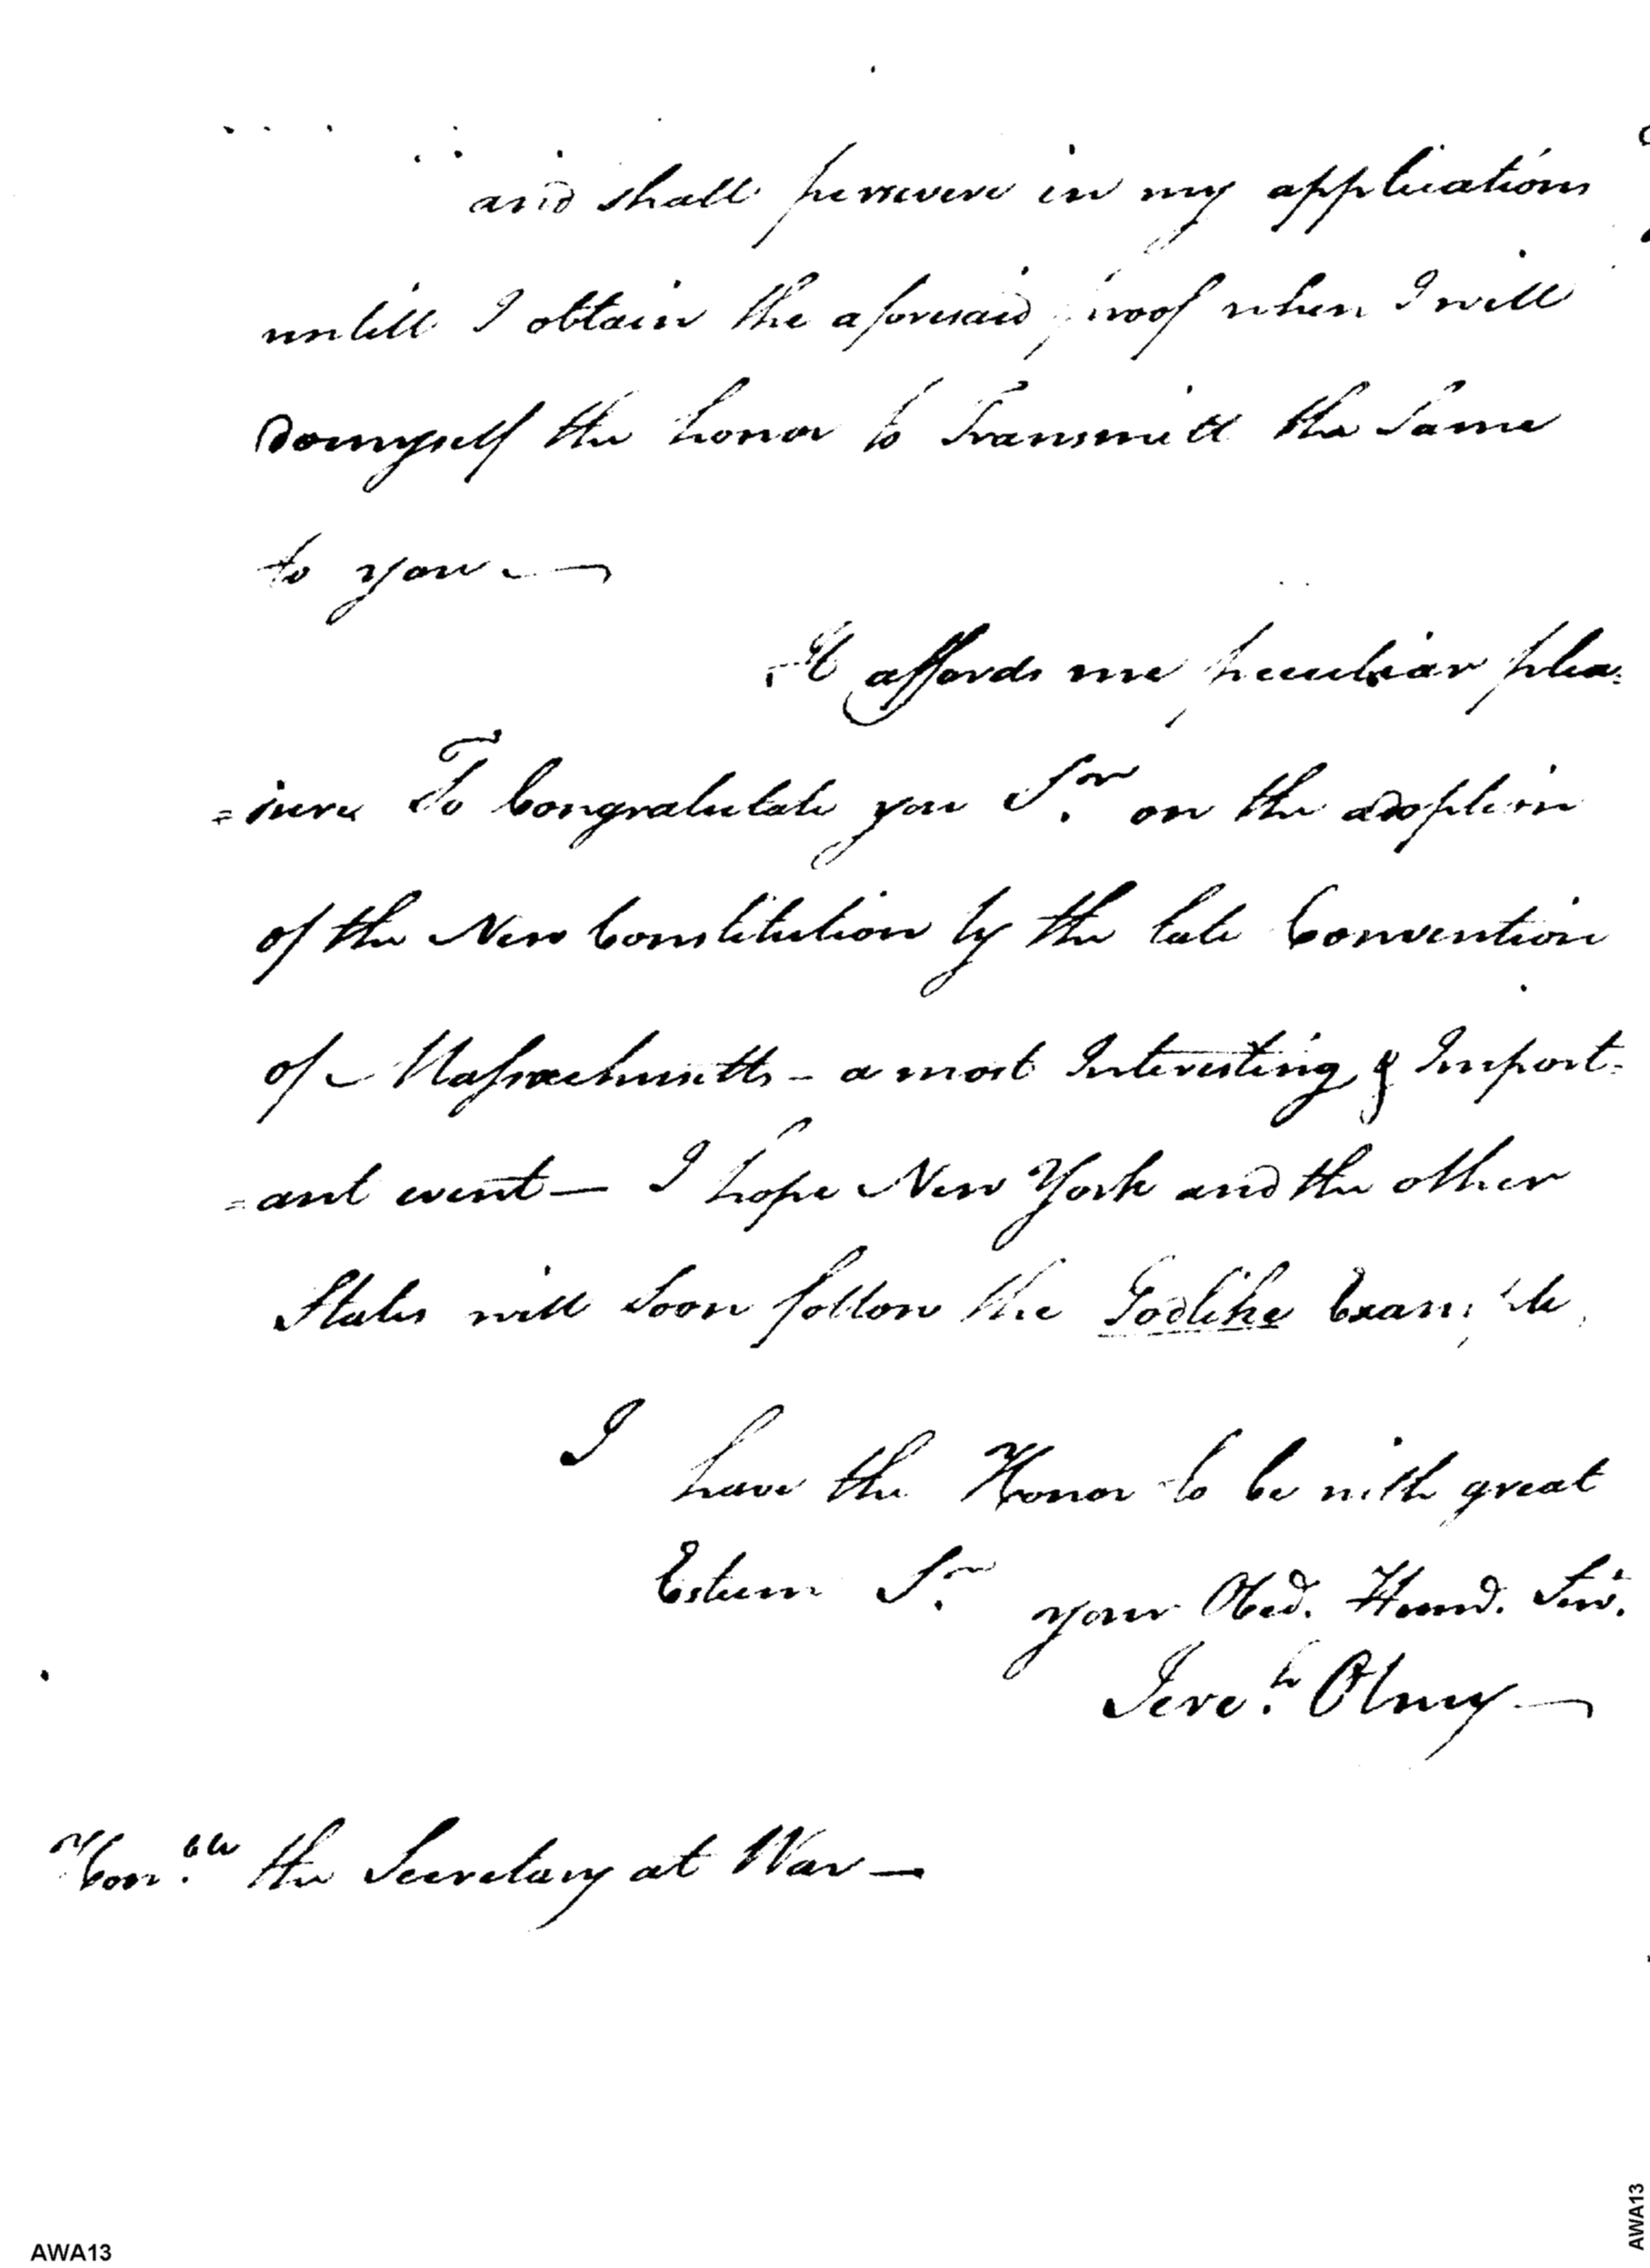 and shall persevere in my applications
untill I obtain the aforesaid proof when I will
domyself the honor to Transmitt the Same
to you —
It affords me peculiar plea=
=sure To Congratulate you Sr. on the adoption
of the New Constitution by the late Convention
of Massachusetts - a most Interesting & Import=
=ant event — I hope New York and the other
States will Soon follow the Godlike Example,
I
have the Honor to be with great
Esteem Sr. your Obed. Humd. Serv.
Jereh. Olney —
Honble. the Secretary at War —
AWA13
AWA13